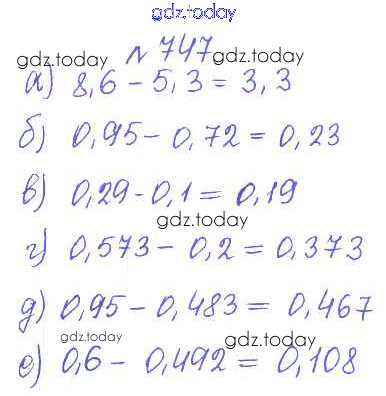 gdz.today
№ 747
gdz.today gdz.today
а) 8,6 - 5,3 = 3,3
б) 0,95 - 0,72 = 0,23
в) 0,29 - 0,1 = 0,19
gdz.today
г) 0,573 - 0,2 = 0,373
д) 0,95 - 0,483 = 0,467
gdz.today gdz.today
е) 0,6 - 0,492 = 0,108